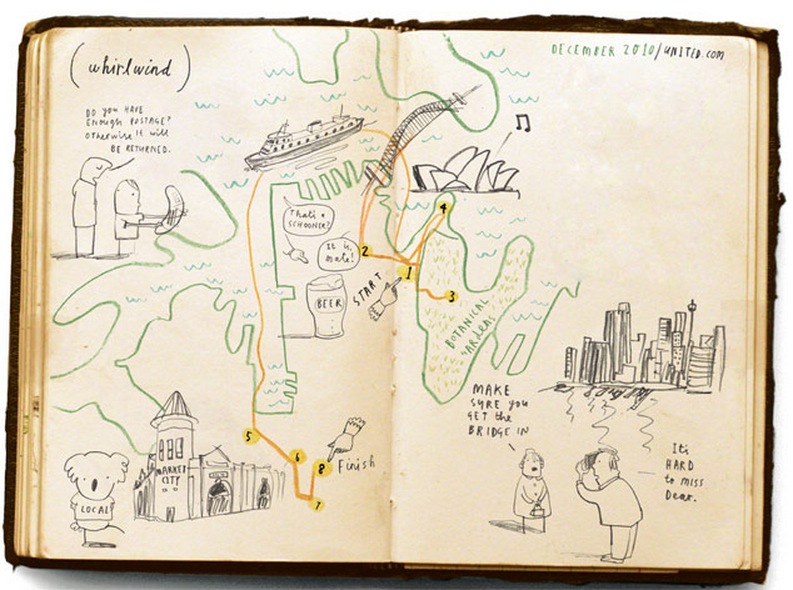 (whirlwind)
DECEMBER 2010/UNITED.COM
DO YOU HAVE
ENOUGH POSTAGE?
OTHERWISE IT WILL
BE RETURNED.
That's a
SCHOONER?
It is,
mate!
BEER
START
1
2
3
4
BOTANICAL
GARDENS
5
6
7
8
Finish
MARKET
CITY
LOCAL
MAKE
SURE YOU
GET the
BRIDGE IN
It's
HARD
to MISS
Dear.